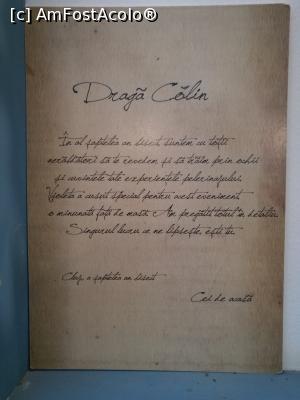 [c] AmFostAcolo®
Dragă Călin
În al șaptelea an discit suntem cu toții
nerăbdători să te revedem și să trăim prin ochii
și cuvintele tale experiențele pelerinajului.
a cusut special pentru acest eveniment
o minunată față de masă. Am pregătit totul în detaliu.
Singurul lucru ce ne lipsește, ești tu.
Cluj, a șaptelea an discit
Cei de acasă